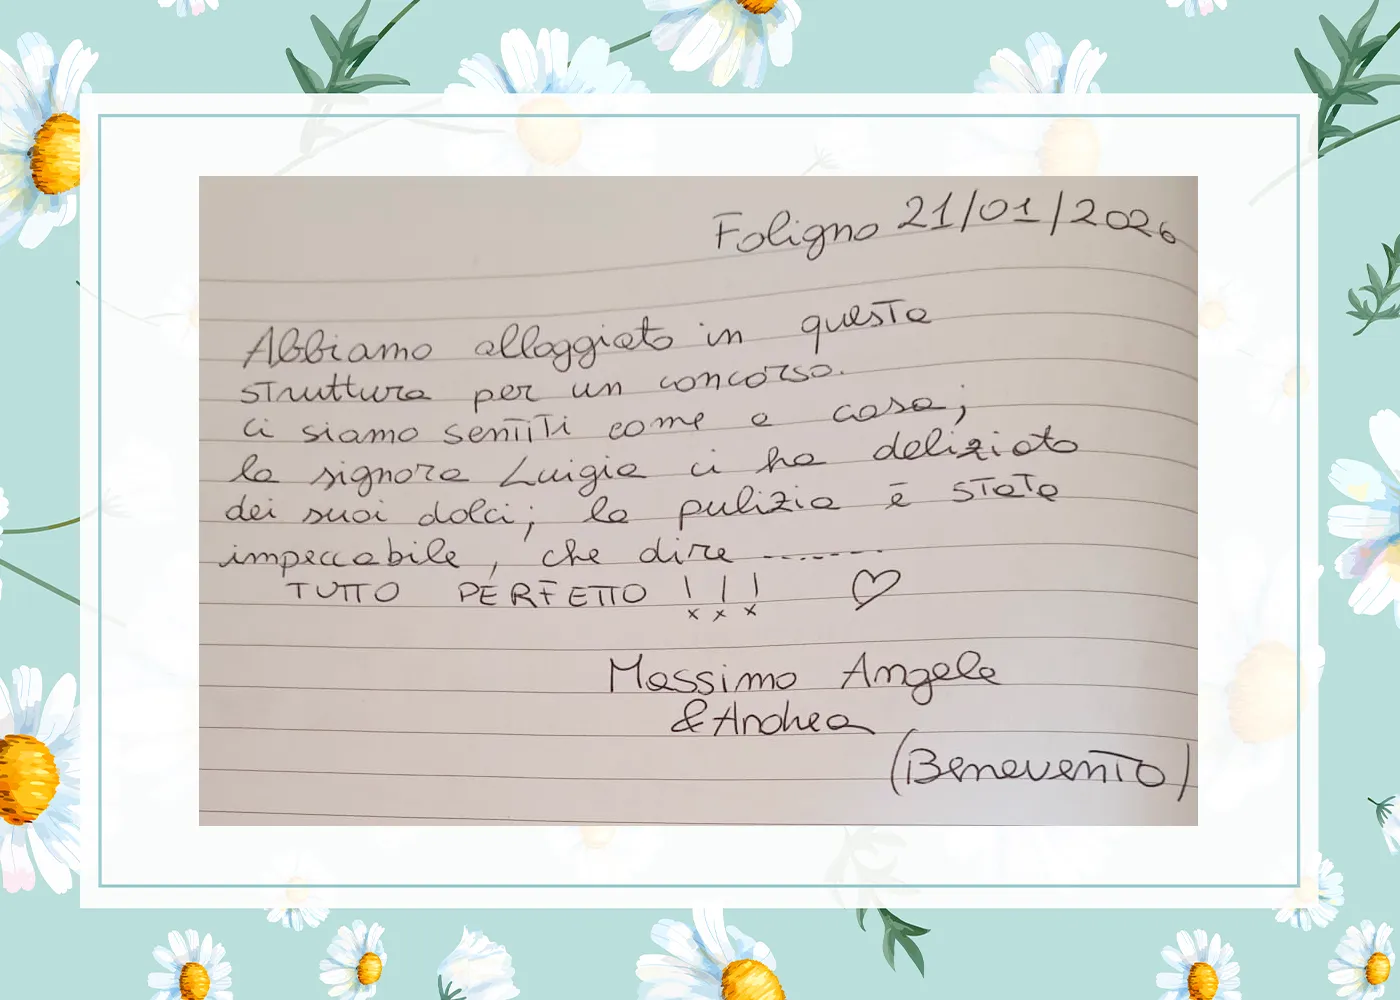 Foligno 21/01/2026
Abbiamo alloggiato in questa
struttura per un concorso.
ci siamo sentiti come a casa;
la signora Luigia ci ha deliziato
dei suoi dolci; la pulizia è stata
impeccabile, che dire -------
TUTTO PERFETTO !!! ♡
Massimo Angela
& Andrea
(Benevento)